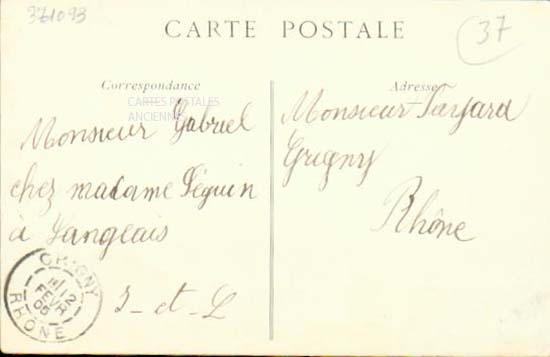 371093
37
CARTE POSTALE
Correspondance
CARTES POSTALES
ANCIENNES
Monsieur Gabriel
chez madame Séguin
à Langeais
I-et-L
Adresse
Monsieur
Grigny
Rhône
GRIGNY
12
FEVR
05
RHÔNE